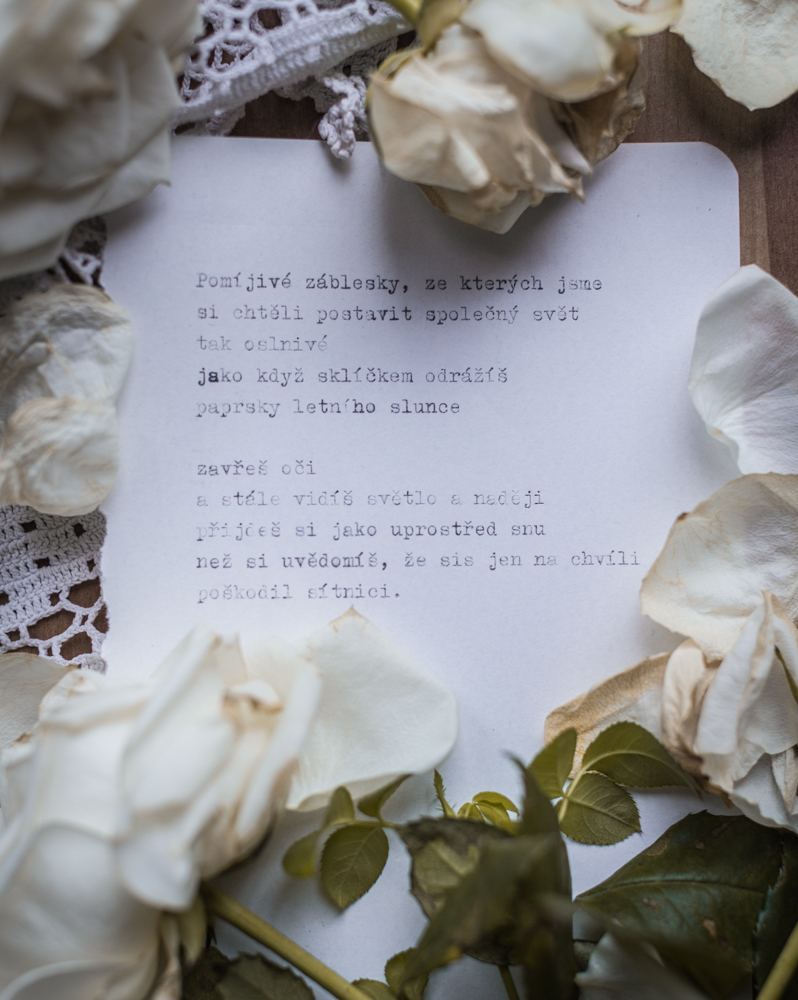 Pomíjivé záblesky, ze kterých jsme
si chtěli postavit společný svět
tak oslnivé
jako když sklíčkem odrážíš
paprsky letního slunce
zavřeš oči
a stále vidíš světlo a naději
přijdeš si jako uprostřed snu
než si uvědomíš, že sis jen na chvíli
poškodil sítnici.